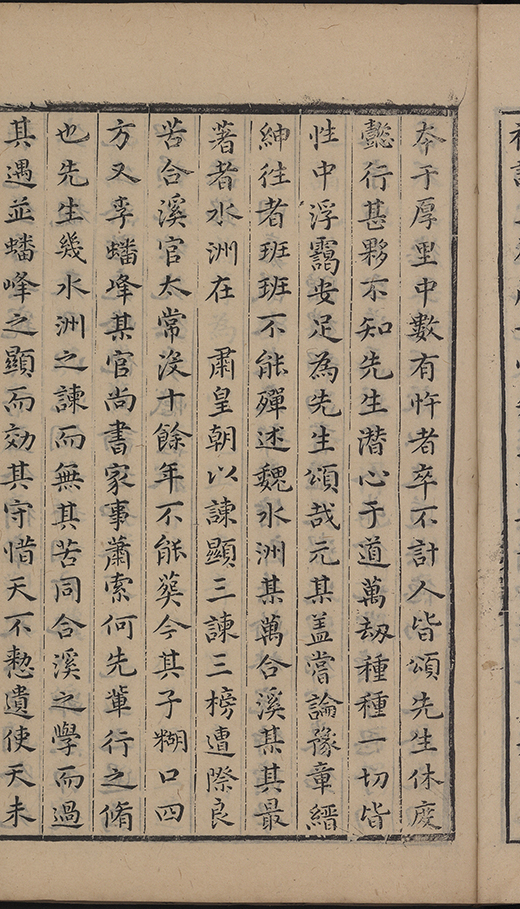 夲于厚里中數有忤者卒不計人皆頌先生休度
懿行甚夥不知先生潛心于道萬刼種種一切皆
性中浮靄安足為先生頌哉元某盖嘗論豫章縉
紳往者班班不能殫述魏水洲某萬合溪某其最
著者水洲在　肅皇朝以諫顯三諫三榜遭際良
苦合溪官太常没十餘年不能葬今其子糊口四
方又李蟠峰某官尚書家事蕭索何先軰行之脩
也先生幾水洲之諫而無其苦同合溪之學而過
其遇並蟠峰之顯而効其守惜天不憗遺使天未